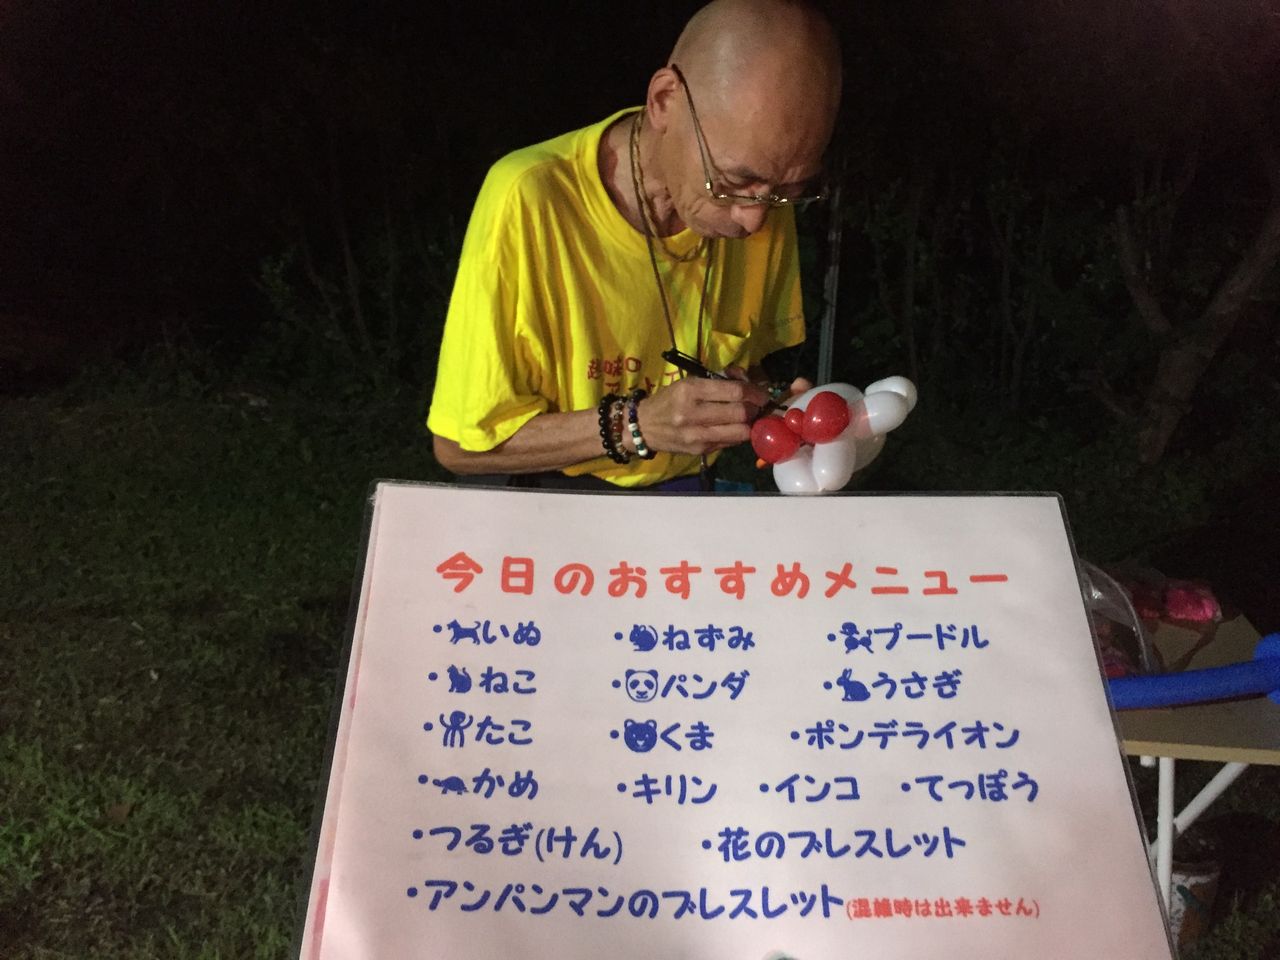 趣味の
今日のおすすめメニュー
・いぬ ・ねずみ ・プードル
・ねこ ・パンダ ・うさぎ
・たこ ・くま ・ポンデライオン
・かめ ・キリン ・インコ ・てっぽう
・つるぎ(けん) ・花のブレスレット
・アンパンマンのブレスレット(混雑時は出来ません)